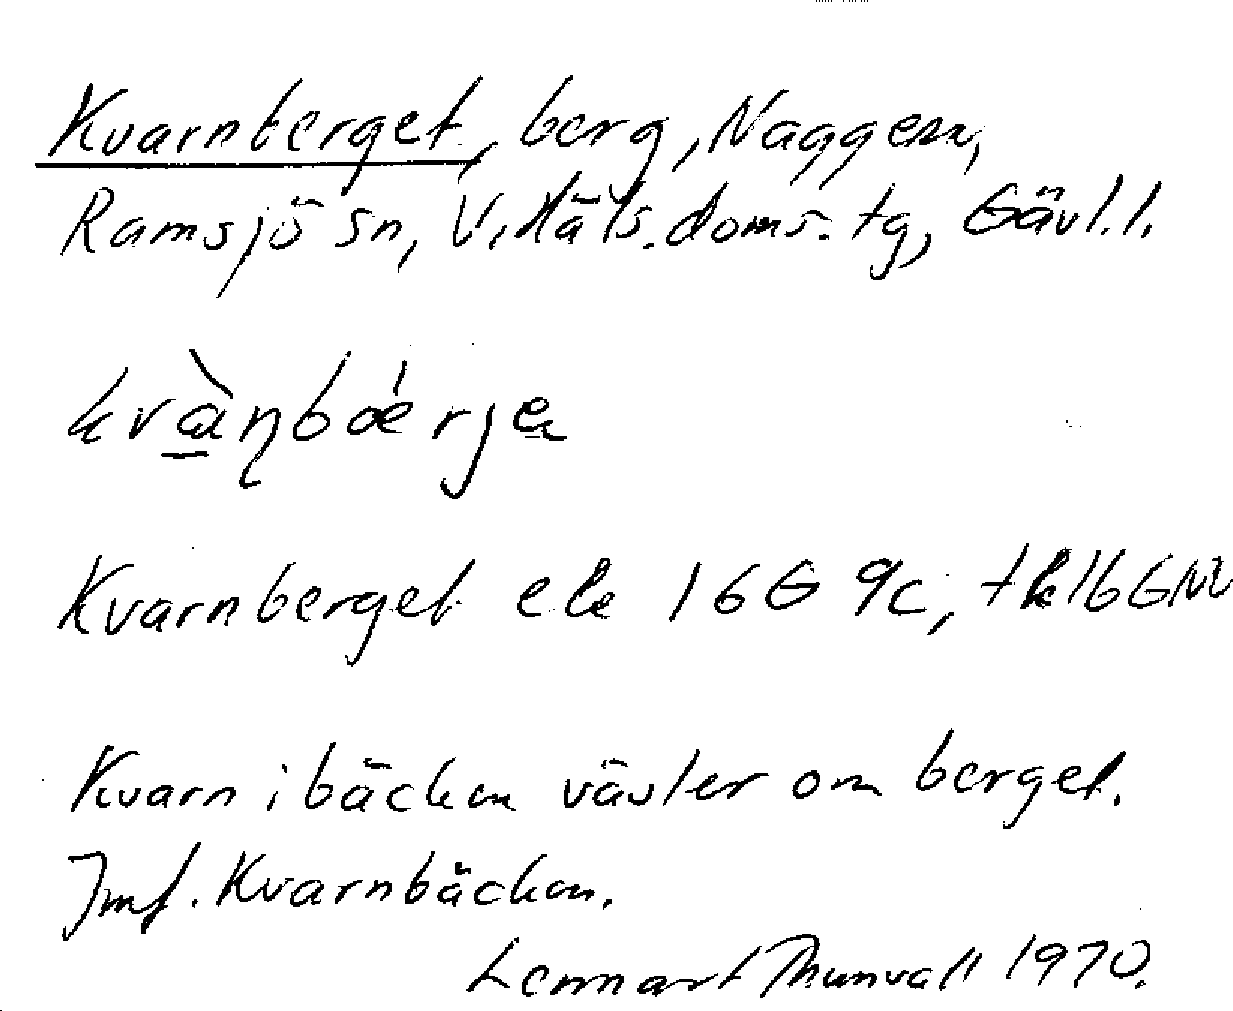 Kvarnberget, berg, Naggen,
Ramsjö sn, V. Häls. doms. tg, Gävl. l.
kvàṇbǽrje
Kvarnberget ek 16G 9c, tk 16GNV
Kvarn i bäcken väster om berget.
Jmf. Kvarnbäcken.
Lennart Thunvall 1970.